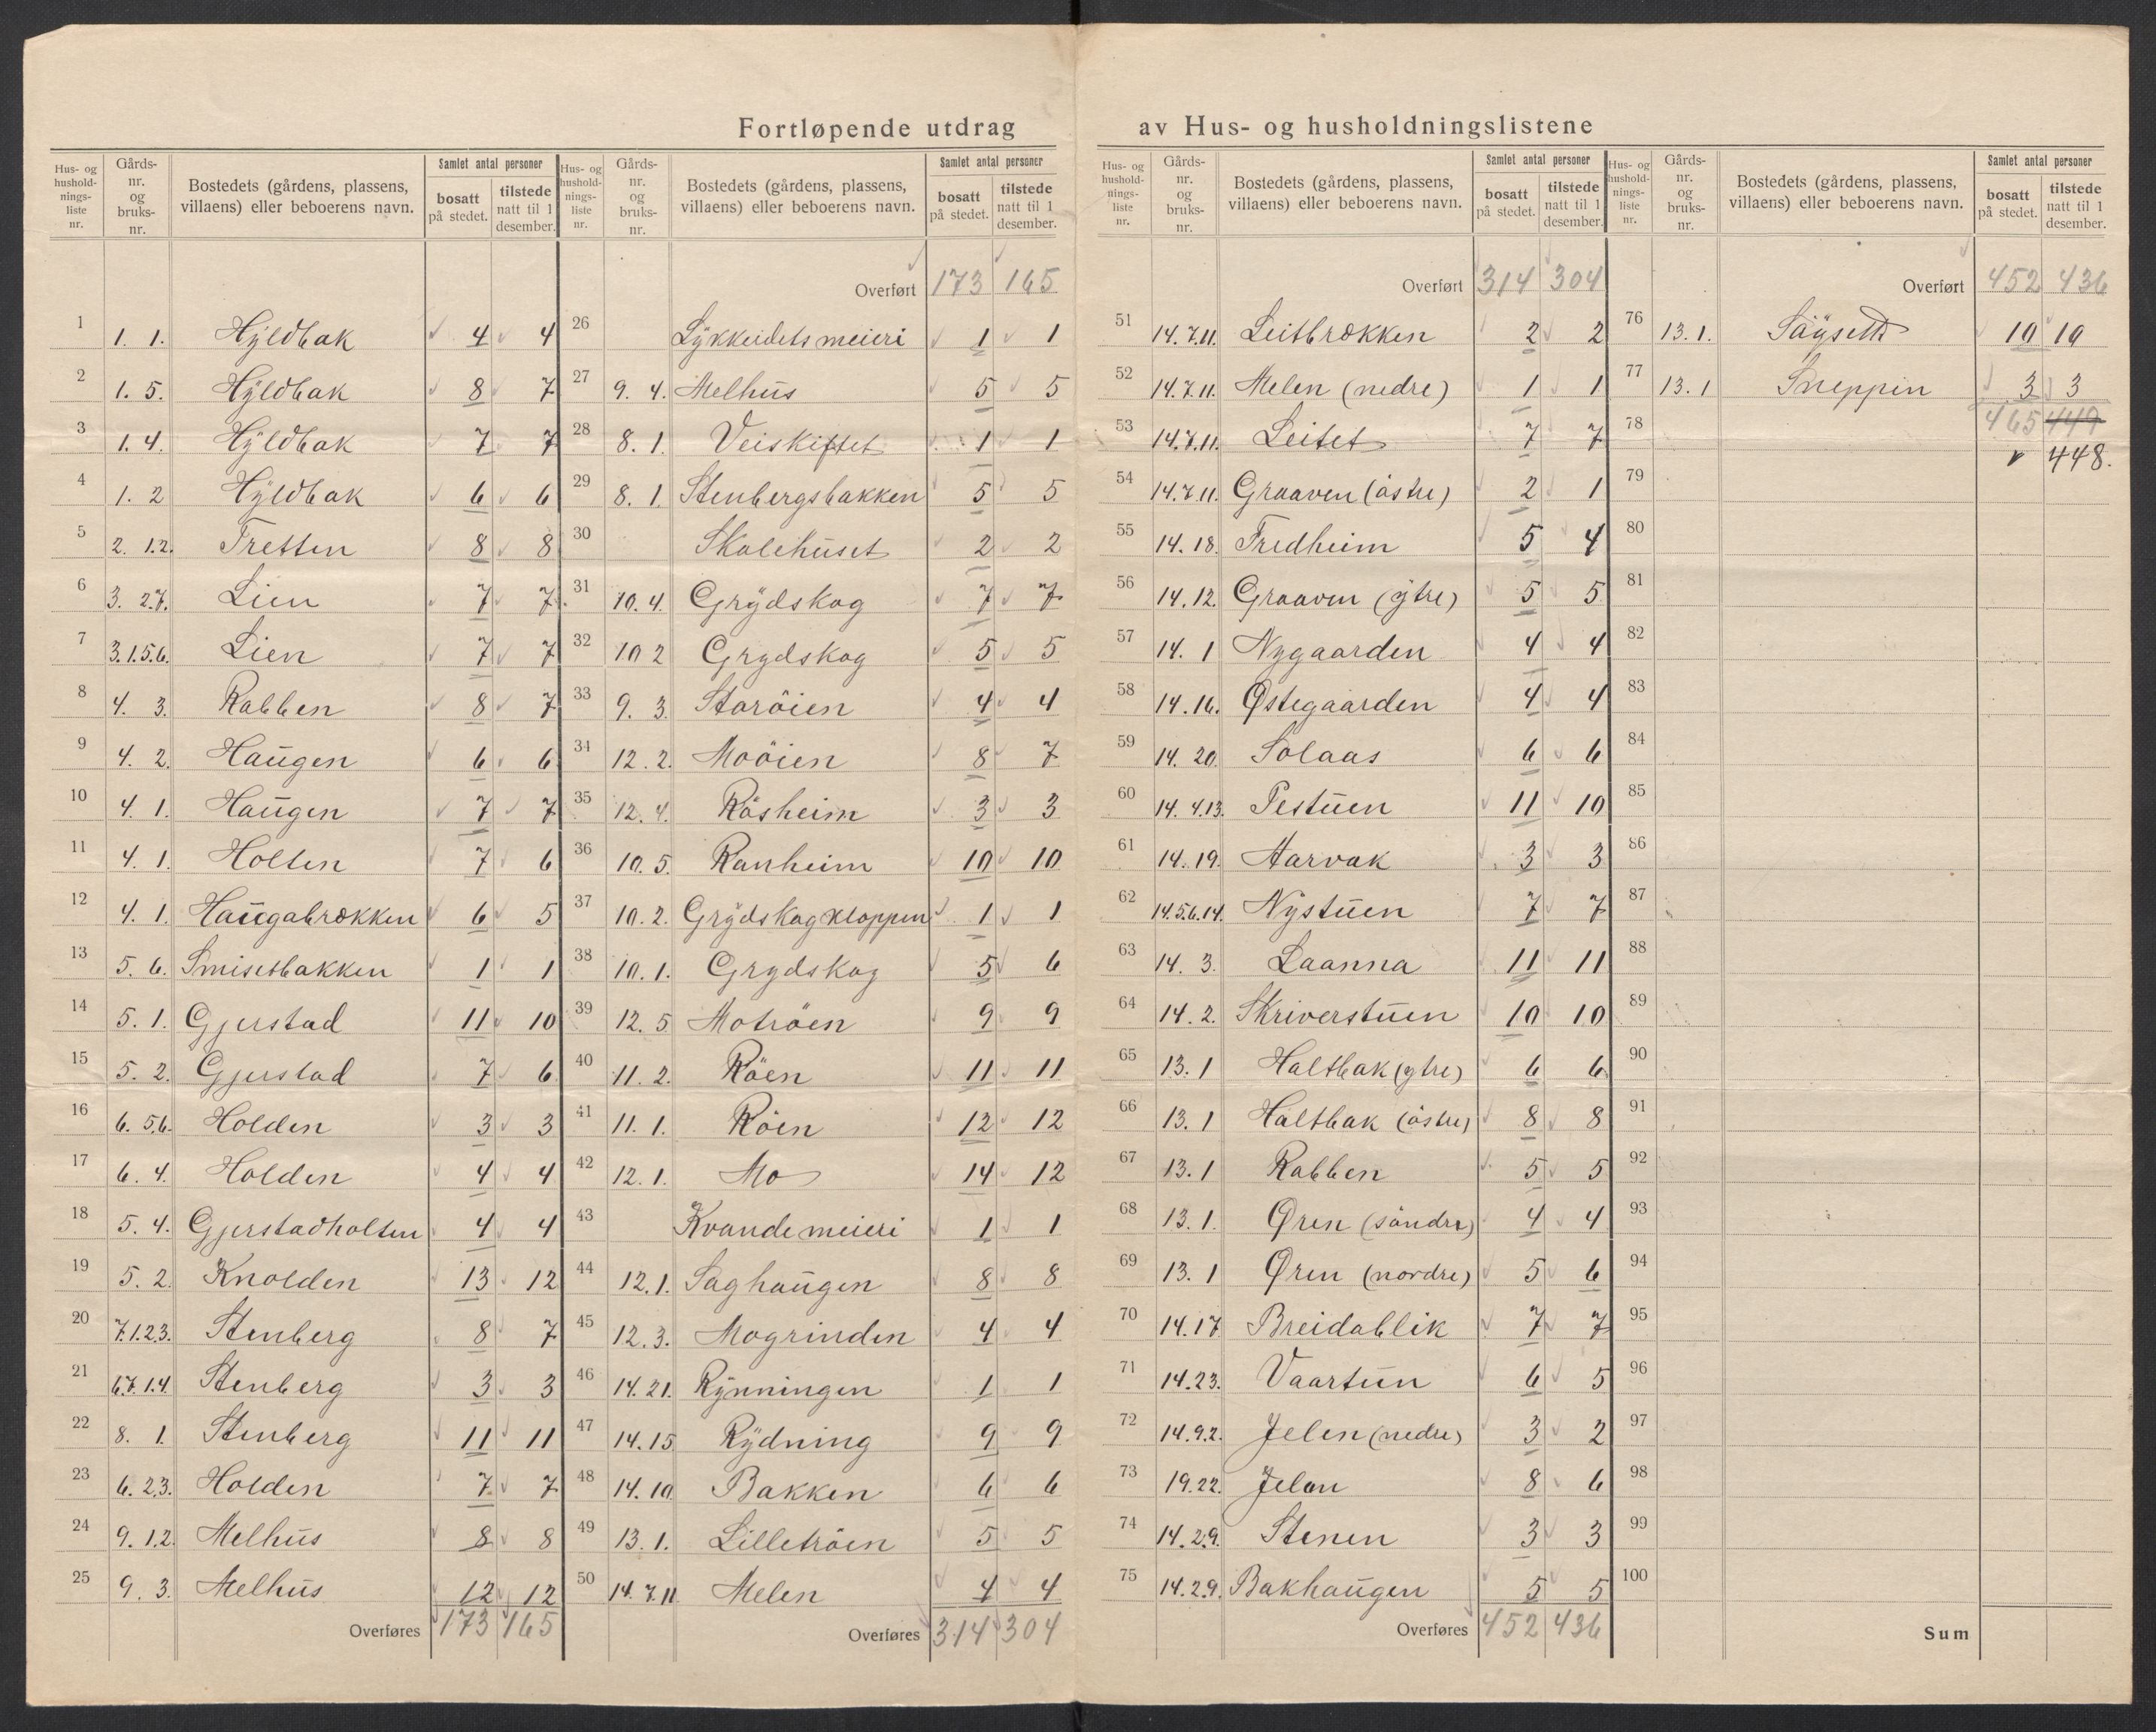 Fortløpende utdrag av Hus- og husholdningslistene
Hus- og hushold-nings-liste nr. | Gårds-nr. og bruks-nr. | Bostedets (gårdens, plassens, villaens) eller beboerens navn. | Samlet antal personer bosatt på stedet. | tilstede natt til 1 desember.
1 1. 1. Hÿldbak 4 4
2 1. 5. Hÿldbak 8 7
3 1. 4. Hÿldbak 7 7
4 1. 2 Hÿldbak 6 6
5 2. 1.2. Tretten 8 8
6 3. 2.7. Lien 7 7
7 3.1.5.6. Lien 7 7
8 4. 3. Rabben 8 7
9 4. 2. Haugen 6 6
10 4. 1. Haugen 7 7
11 4. 1. Holten 7 6
12 4. 1. Haugabrækken 6 5
13 5. 6. Smisetbakken 1 1
14 5. 1. Gjerstad 11 10
15 5. 2. Gjerstad 7 6
16 6. 5.6. Holden 3 3
17 6. 4. Holden 4 4
18 5. 4. Gjerstadholten 4 4
19 5. 2. Knolden 13 12
20 7.1.2.3. Stenberg 8 7
21 6.7. 1.4. Stenberg 3 3
22 8. 1. Stenberg 11 11
23 6. 2.3. Holden 7 7
24 9. 1.2. Melhus 8 8
25 9. 3. Melhus 12 12
Overføres 173 165
Hus- og hushold-nings-liste nr. | Gårds-nr. og bruks-nr. | Bostedets (gårdens, plassens, villaens) eller beboerens navn. | Samlet antal personer bosatt på stedet. | tilstede natt til 1 desember.
Overført 173 165
26 Lykkeidets meieri 1 1
27 9. 4. Melhus 5 5
28 8. 1. Veiskiftet 1 1
29 8. 1. Stenbergsbakken 5 5
30 Skolehuset 2 2
31 10. 4. Grÿdskog 7 7
32 10 2 Grydskog 5 5
33 9. 3. Staröien 4 4
34 12. 2. Moöien 8 7
35 12. 4. Rösheim 3 3
36 10. 5. Ranheim 10 10
37 10. 2. Grÿdskogkloppen 1 1
38 10. 1. Grydskog 5 6
39 12. 5 Motröen 9 9
40 11. 2. Röen 11 11
41 11. 1. Röen 12 12
42 12. 1. Mo 14 12
43 Kvande meieri 1 1
44 12. 1. Saghaugen 8 8
45 12. 3. Mogrinden 4 4
46 14. 21. Rÿnningen 1 1
47 14. 15 Rÿdning 9 9
48 14. 10 Bakken 6 6
49 13. 1. Lilletröen 5 5
50 14. 7. 11 Melen 4 4
Overføres 314 304
Hus- og hushold-nings-liste nr. | Gårds-nr. og bruks-nr. | Bostedets (gårdens, plassens, villaens) eller beboerens navn. | Samlet antal personer bosatt på stedet. | tilstede natt til 1 desember.
Overført 314 304
51 14. 7. 11. Leitbrækken 2 2
52 14. 7. 11. Melen (nedre) 1 1
53 14. 7. 11. Leitet 7 7
54 14. 7. 11. Graaven (östre) 2 1
55 14. 18. Fredheim 5 4
56 14. 12. Graaven (ÿtre) 5 5
57 14. 1 Nygaarden 4 4
58 14. 16. Østegaarden 4 4
59 14. 20. Solaas 6 6
60 14. 4.13. Pestuen 11 10
61 14. 19. Aarvak 3 3
62 14.5.6.14. Nÿstuen 7 7
63 14. 3. Laanna 11 11
64 14. 2. Skriverstuen 10 10
65 13. 1 Haltbak (ytre) 6 6
66 13. 1 Haltbak (östre) 8 8
67 13. 1 Rabben 5 5
68 13. 1. Øren (söndre) 4 4
69 13. 1 Øren (nordre) 5 6
70 14. 17 Breidablik 7 7
71 14. 23. Vaartun 6 5
72 14. 9.2. Jelen (nedre) 3 2
73 19. 22. Jelan 8 6
74 14. 2.9. Stenen 3 3
75 14. 2.9. Bakhaugen 5 5
Overføres 452 436
Hus- og hushold-nings-liste nr. | Gårds-nr. og bruks-nr. | Bostedets (gårdens, plassens, villaens) eller beboerens navn. | Samlet antal personer bosatt på stedet. | tilstede natt til 1 desember.
Overført 452 436
76 13. 1. 10 10
77 13. 1 Sneppin 3 3
465 449
78 448.
79
80
81
82
83
84
85
86
87
88
89
90
91
92
93
94
95
96
97
98
99
100
Sum